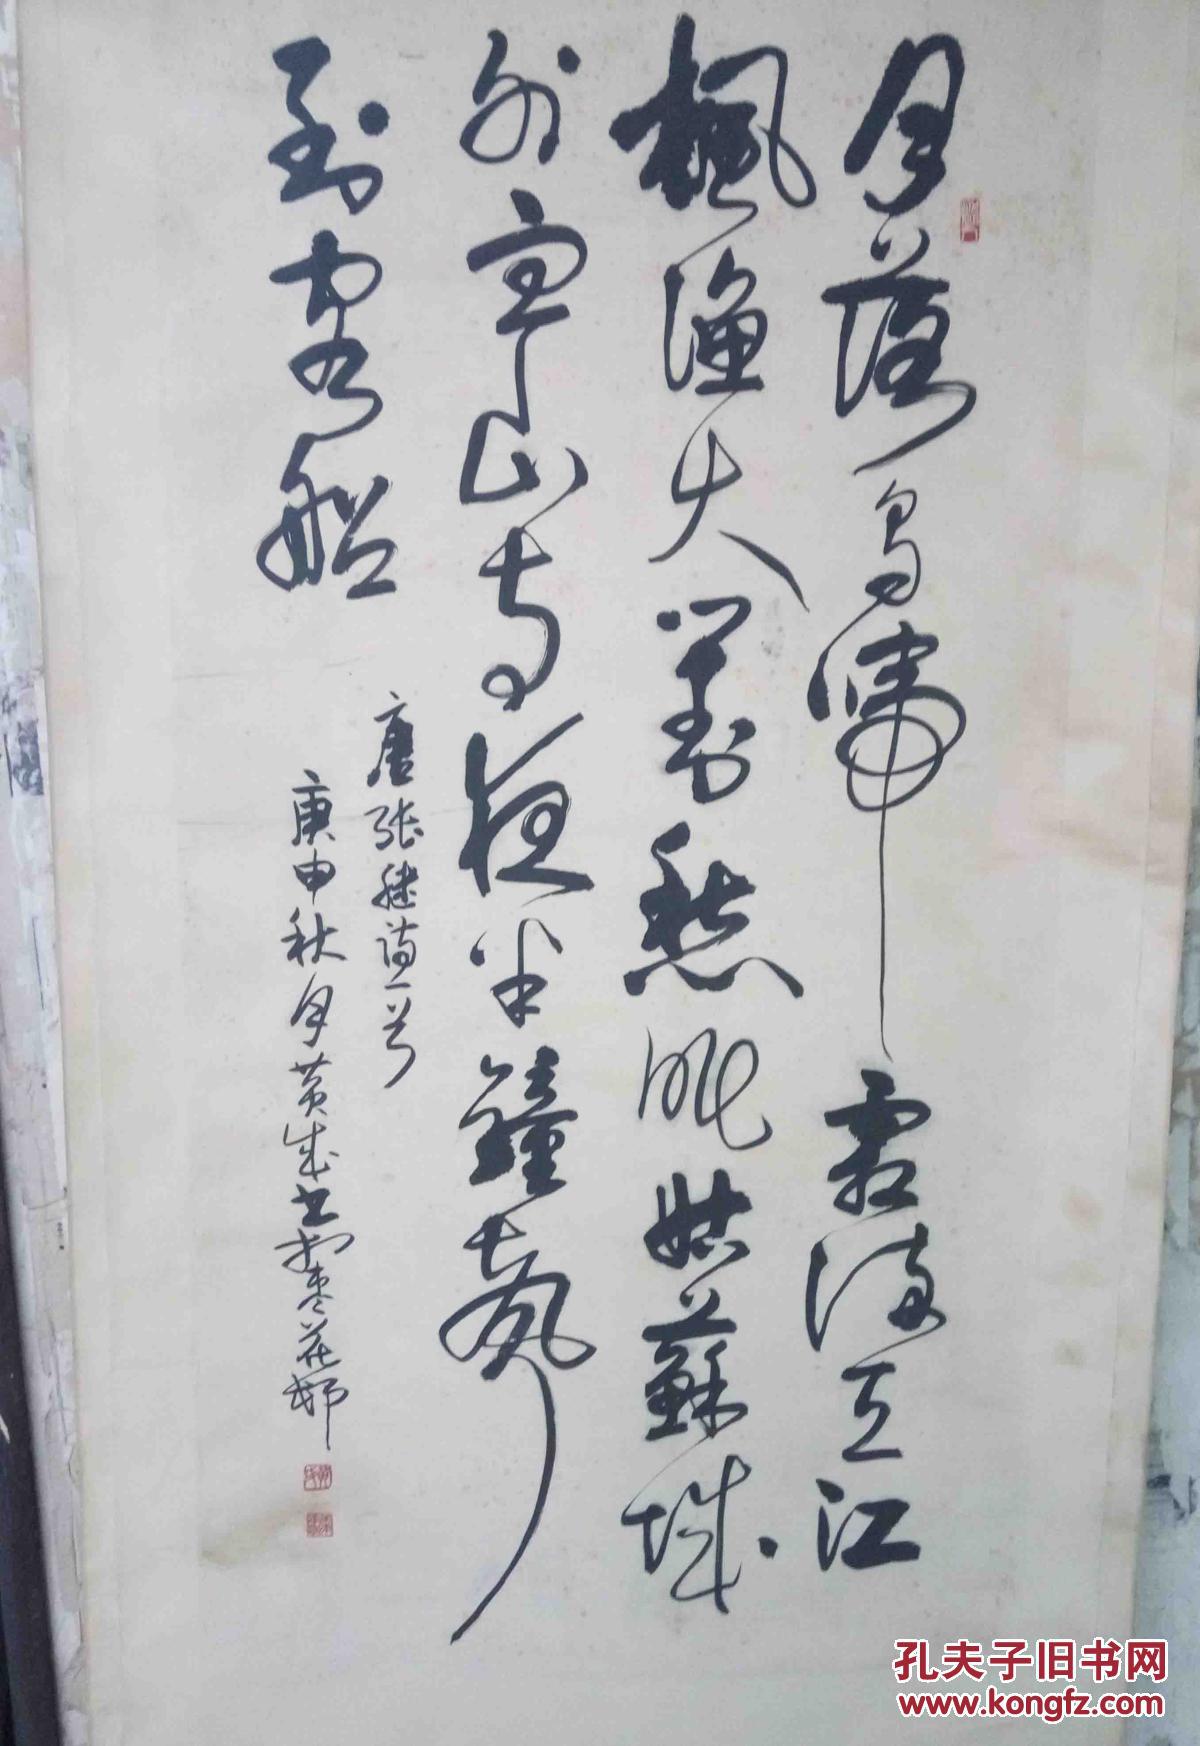 月落烏啼霜满天江
楓漁火對愁眠姑蘇城
外寒山寺夜半鐘聲
到客船
唐張继詩一首
庚申秋月黄成书于枣花邨
孔夫子旧书网
www.kongfz.com